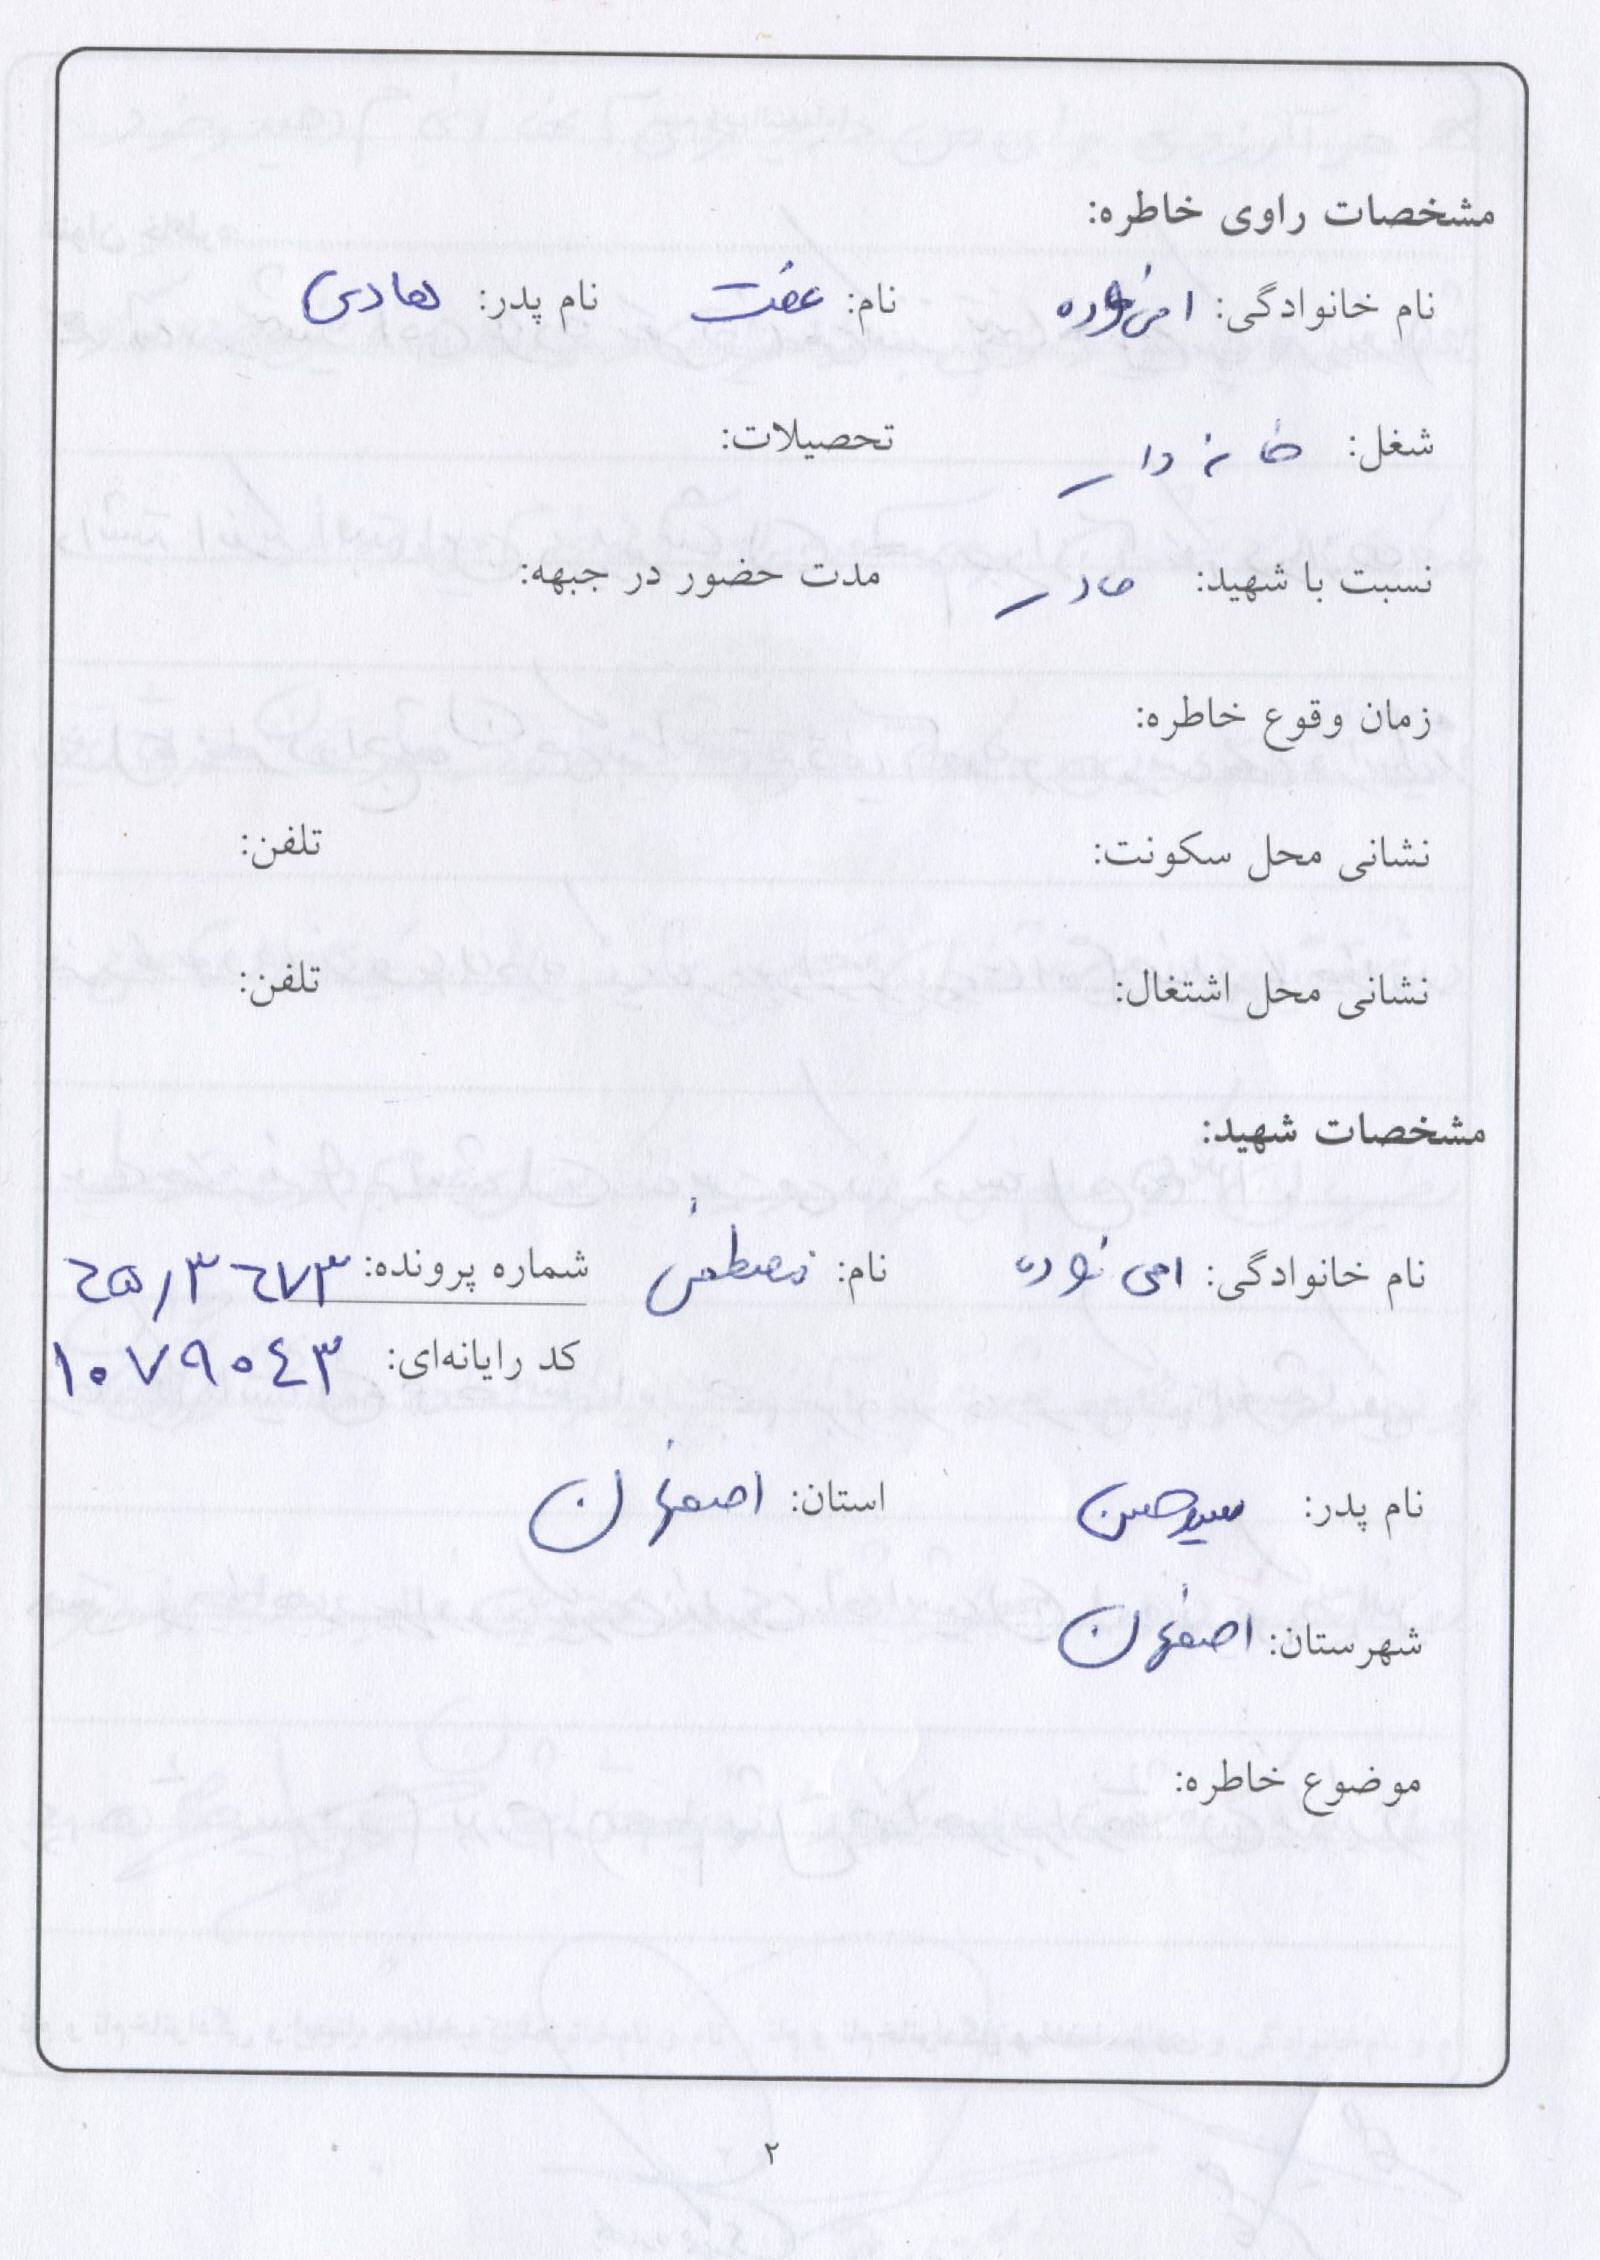 مشخصات راوی خاطره:
نام خانوادگی: نام: عفت نام پدر: هادی
شغل: خانه دار تحصیلات:
نسبت با شهید: مادر مدت حضور در جبهه:
زمان وقوع خاطره:
نشانی محل سکونت: تلفن:
نشانی محل اشتغال: تلفن:
مشخصات شهید:
نام خانوادگی: نام: مصطفی شماره پرونده:
کد رایانه‌ای: ۱۰۷۹۰۴۳
نام پدر: سیدحسن استان: اصفهان
شهرستان: اصفهان
موضوع خاطره:
۲